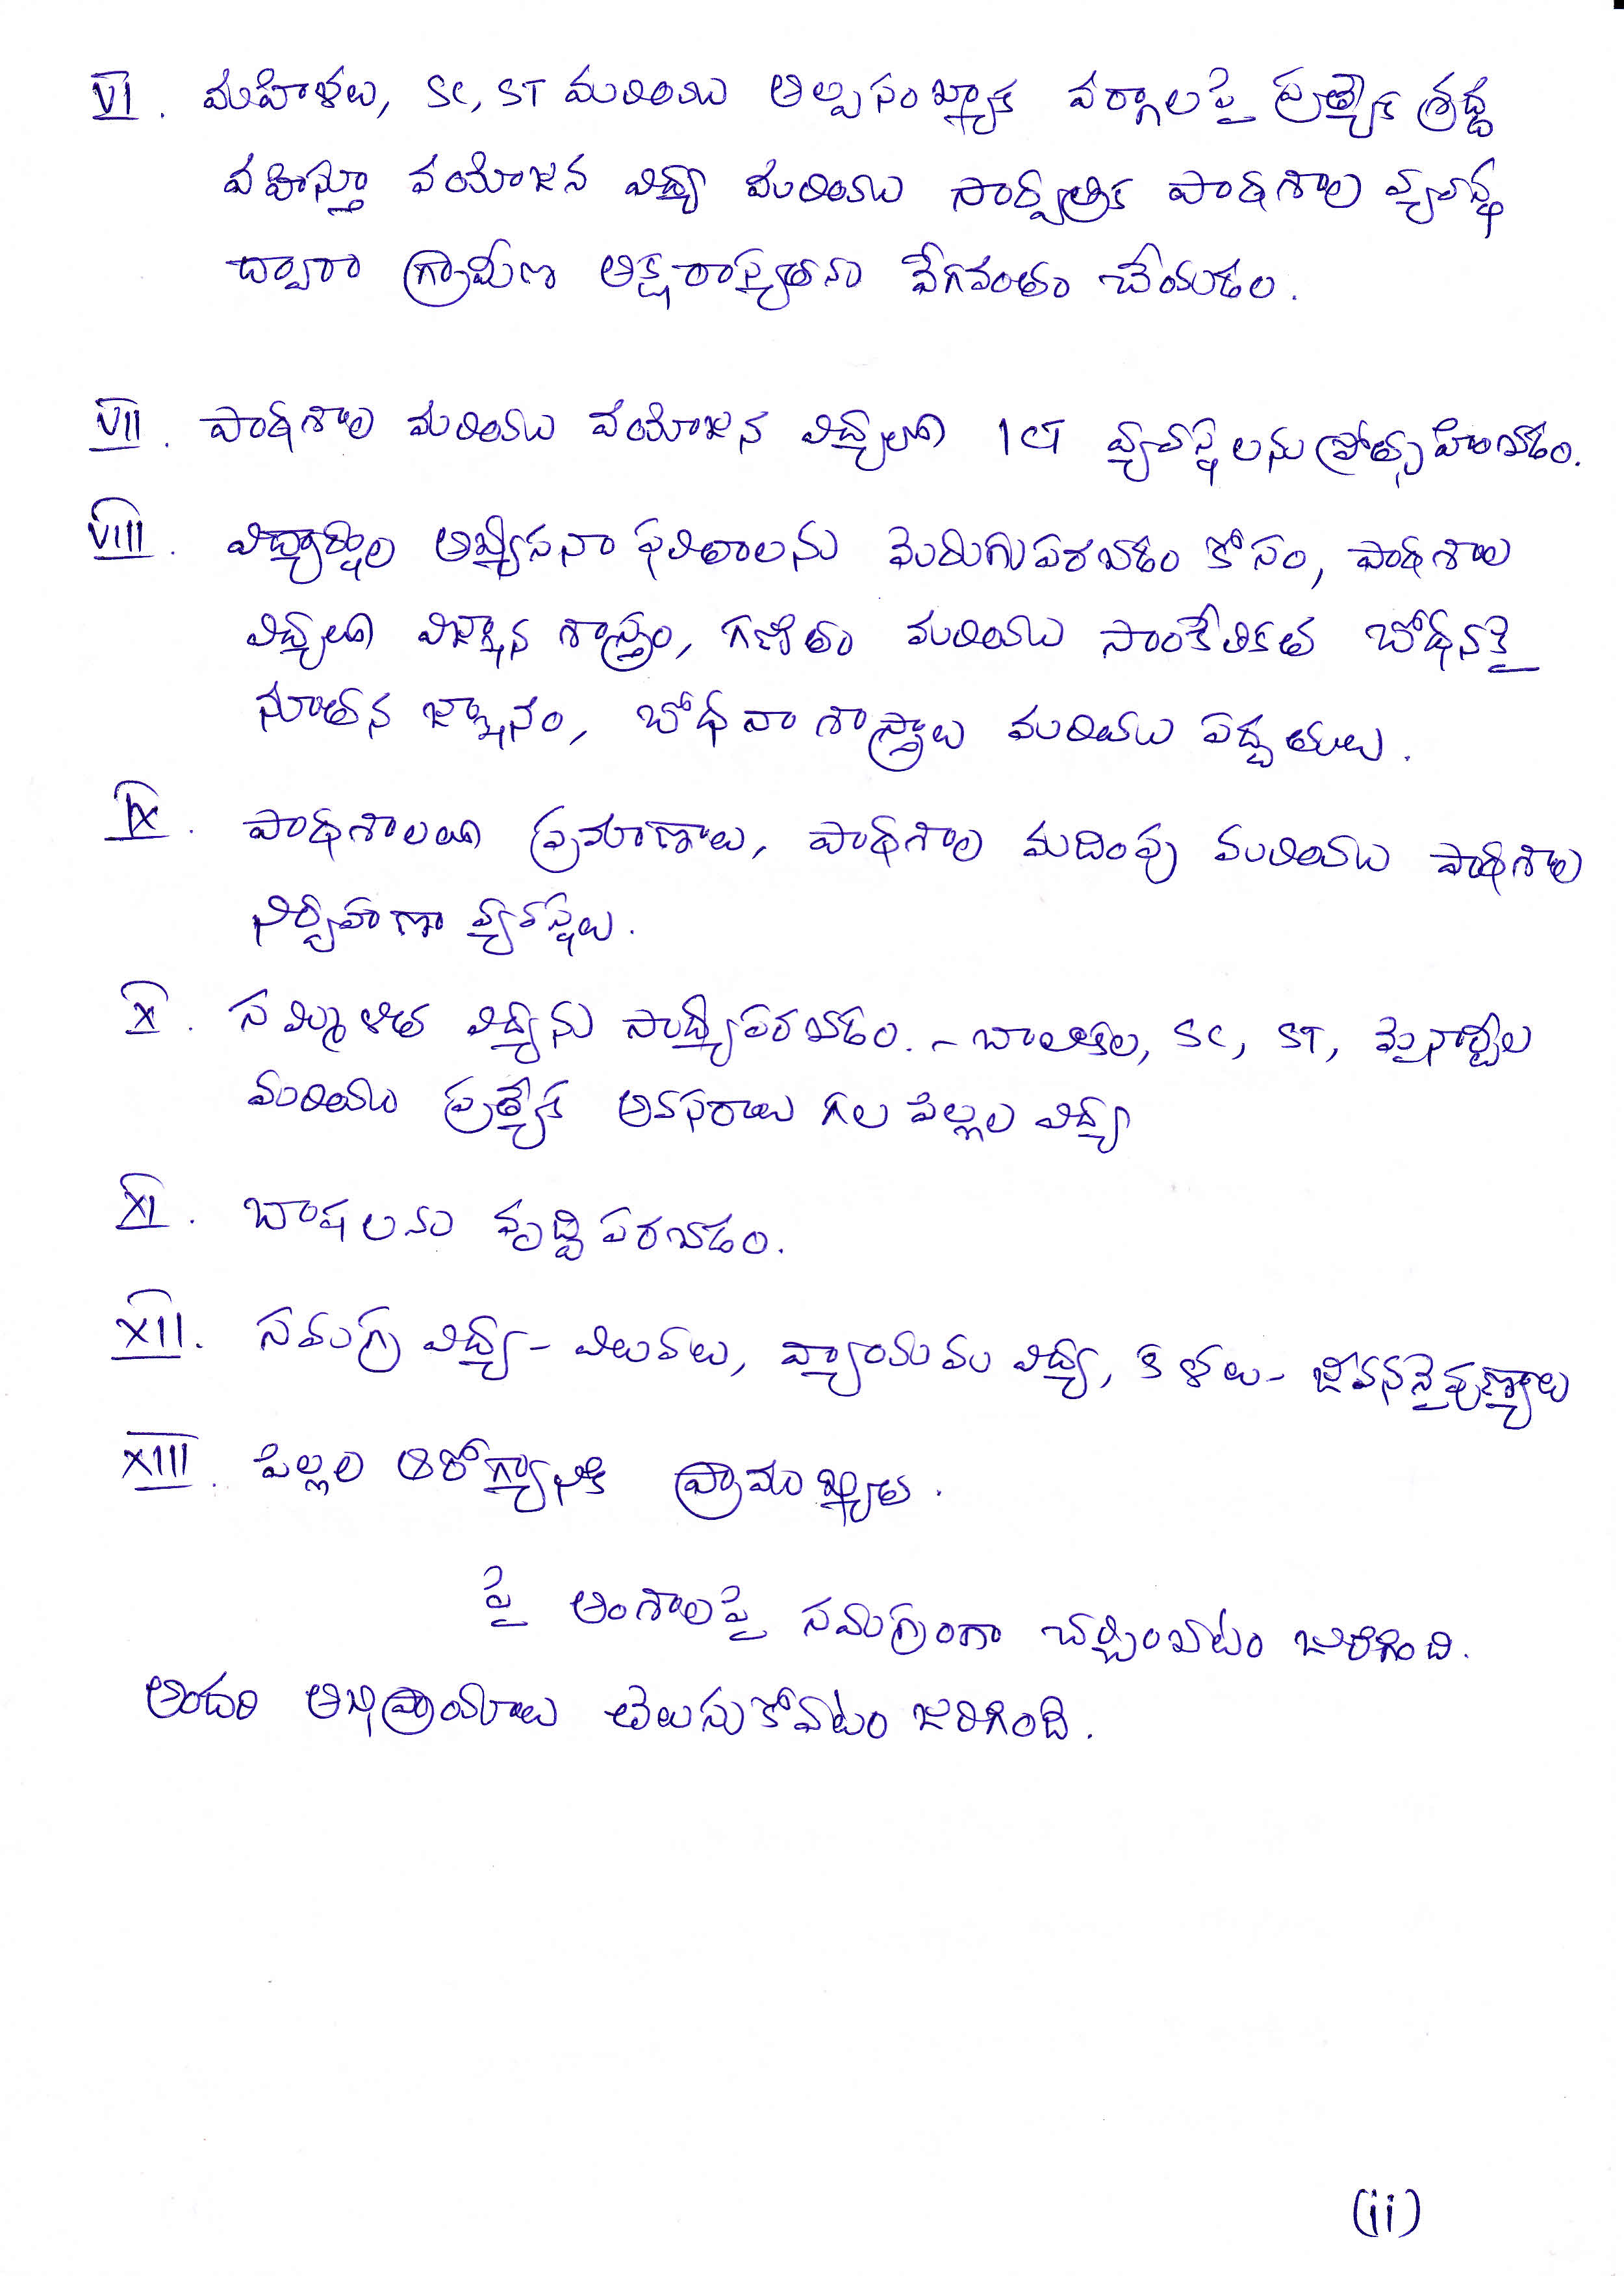 VI. మహిళలు, SC, ST మరియు అల్పసంఖ్యాక వర్గాలపై ప్రత్యేక శ్రద్ధ
వహిస్తూ వయోజన విద్యా మరియు సార్వత్రిక పాఠశాల వ్యవస్థ
ద్వారా గ్రామీణ అక్షరాస్యతను వేగవంతం చేయడం.
VII. పాఠశాల మరియు వయోజన విద్యలో ICT వ్యవస్థలను ప్రోత్సహించడం.
VIII. విద్యార్థుల అభ్యసనా ఫలితాలను మెరుగుపరచడం కోసం, పాఠశాల
విద్యలో విజ్ఞాన శాస్త్రం, గణితం మరియు సాంకేతికత బోధనకై
నూతన జ్ఞానం, బోధనా శాస్త్రాల మరియు పద్ధతులు.
IX. పాఠశాలలో ప్రమాణాలు, పాఠశాల మదింపు మరియు పాఠశాల
నిర్వహణా వ్యవస్థలు.
X. సమ్మిళిత విద్యను సాధ్యపరచడం. - బాలికల, SC, ST, మైనార్టీల
మరియు ప్రత్యేక అవసరాలు గల పిల్లల విద్య
XI. బాషలను వృద్ధి పరచడం.
XII. సమగ్ర విద్య - విలువలు, వ్యాయమమ విద్య, కళలు - జీవననైపుణ్యాలు
XIII. పిల్లల ఆరోగ్యానికి ప్రాముఖ్యత.
పై అంశాలపై సమగ్రంగా చర్చించటం జరిగింది.
అందరి అభిప్రాయాలు తెలుసుకోవటం జరిగింది.
(ii)